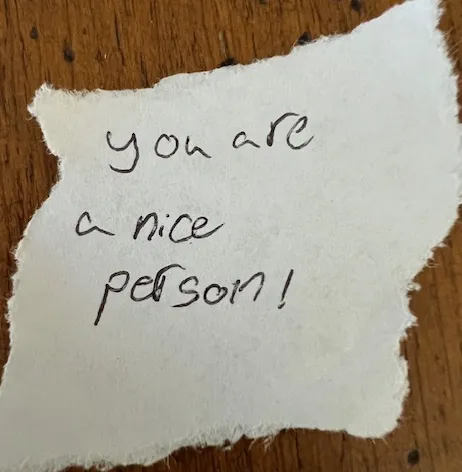 you are
a nice
person!